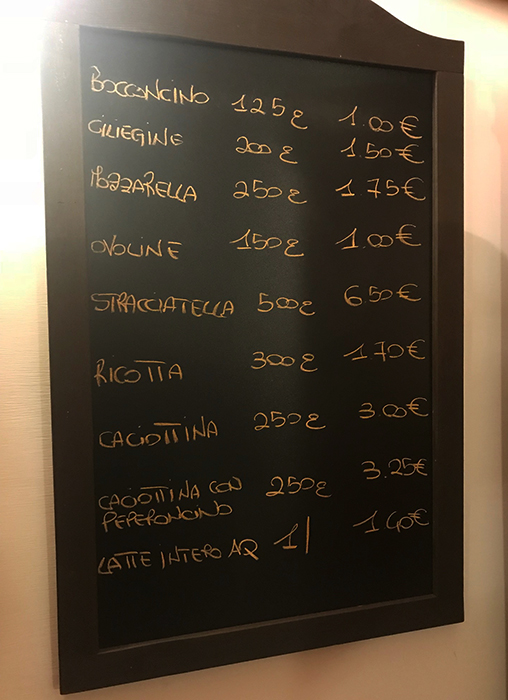 BOCCONCINO 125g 1.00€
CILIEGINE 200g 1.50€
MOZZARELLA 250g 1.75€
OVOLINE 150g 1.00€
STRACCIATELLA 500g 6.50€
RICOTTA 300g 1.70€
CACIOTTINA 250g 3.00€
CACIOTTINA CON 250g 3.25€
PEPERONCINO
LATTE INTERO AQ 1l 1.40€